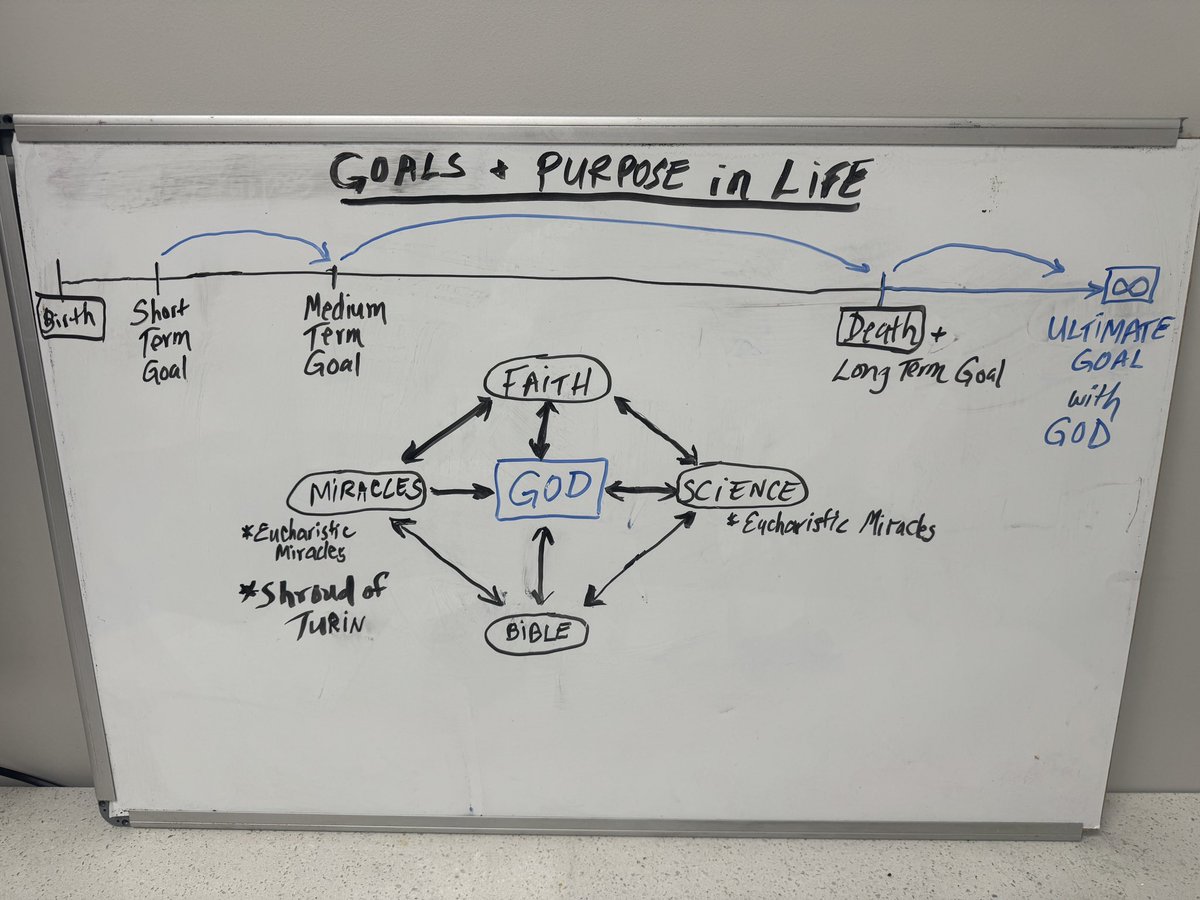 GOALS + PURPOSE in LiFE
∞
Birth
Short
Term
Goal
Medium
Term
Goal
Death +
Long Term Goal
ULTIMATE
GOAL
with
GOD
FAiTH
MiRACLES
GOD
SCiENCE
*Eucharistic
Miracles
*Eucharistic Miracles
*Shroud of
TURiN
BiBLE